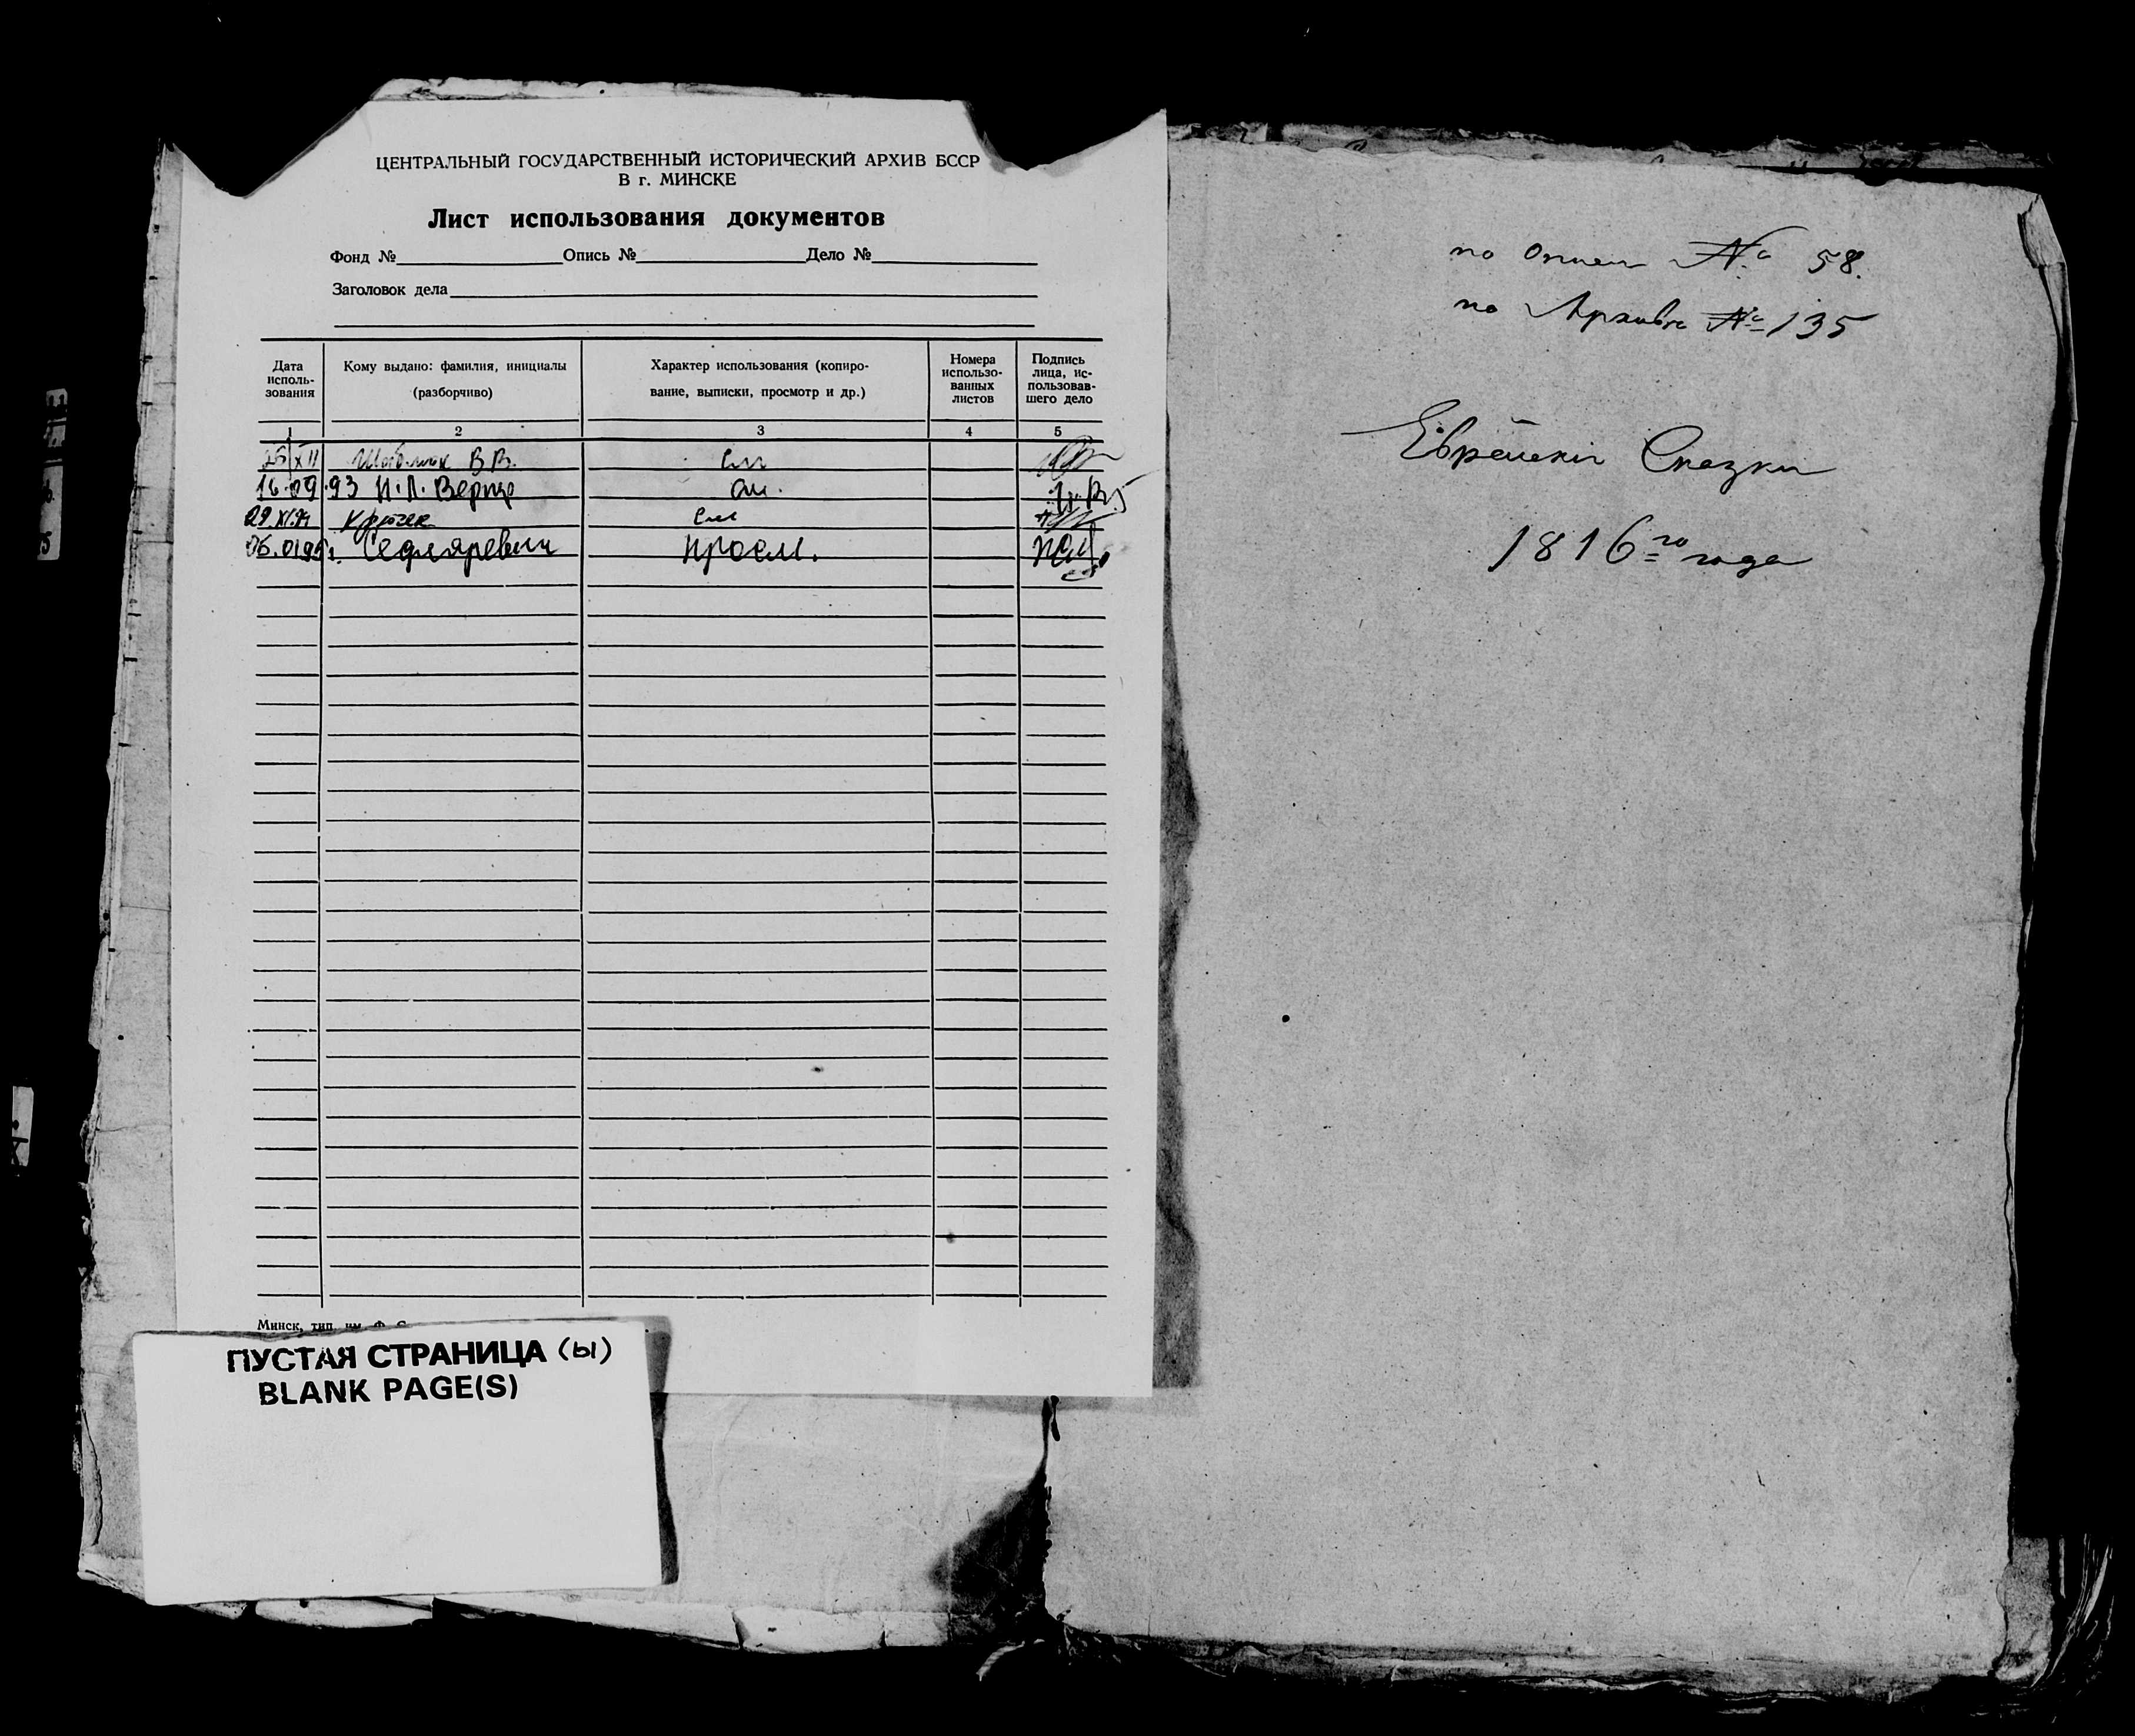 ЦЕНТРАЛЬНЫЙ ГОСУДАРСТВЕННЫЙ ИСТОРИЧЕСКИЙ АРХИВ БССР
В г. МИНСКЕ
Лист использования документов
Фонд № Опись № Дело №
Заголовок дела
Дата исполь-зования
Кому выдано: фамилия, инициалы (разборчиво)
Характер использования (копиро-вание, выписки, просмотр и др.)
Номера использо-ванных листов
Подпись лица, ис-пользовав-шего дело
1 2 3 4 5
XII В.В. см
16.09.93 И.П. см.
29.XI.94 см
06.01.95 просм.
Минск, тип. им. Ф. С
ПУСТАЯ СТРАНИЦА (Ы)
BLANK PAGE(S)
по описи № 58.
по Архиву № 135
Еврейскiи Сказки
1816го года